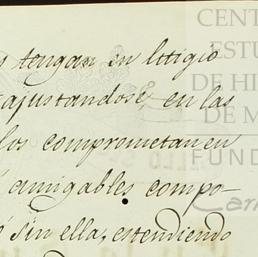 s tengan en litigio
ajustandose en las
los comprometan en
amigables compo-
sin ella, estendiendo
CENT
ESTU
DE HI
DE M
FUND
Carl